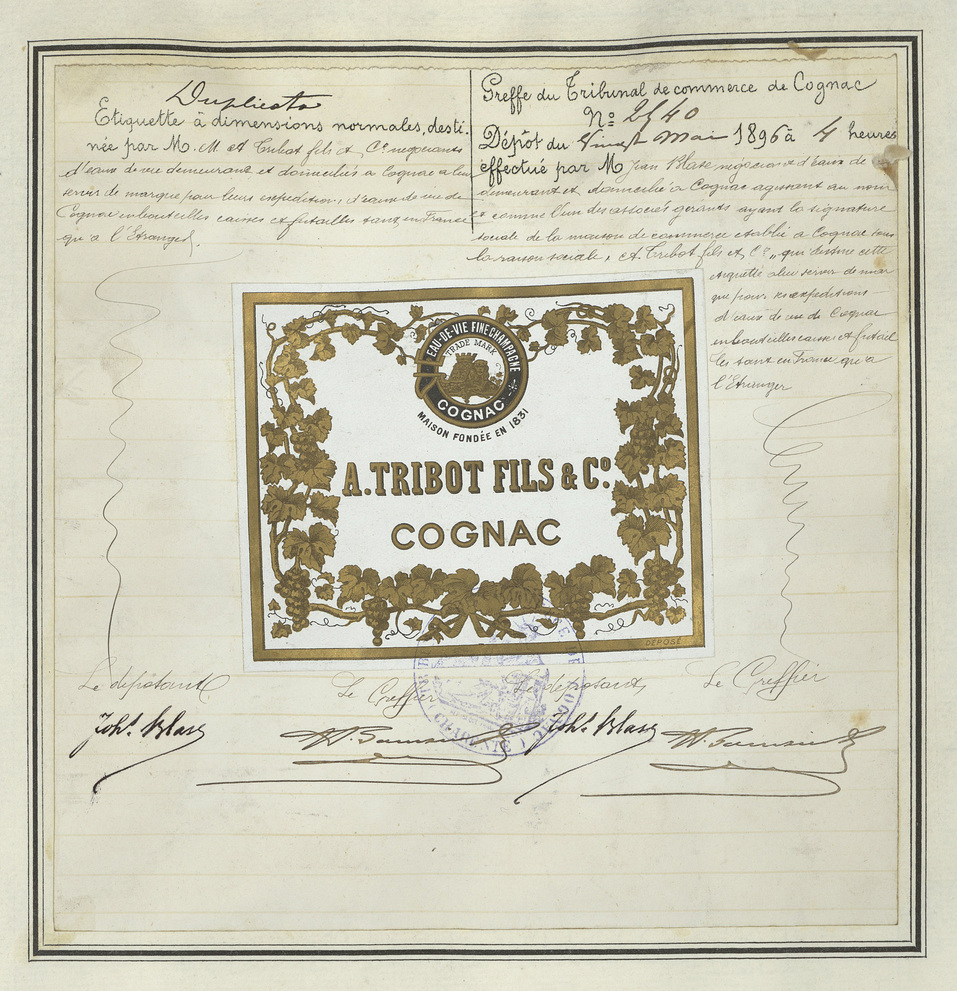 Duplicata
Etiquette à dimensions normales, desti-
née par M. M A Tribot fils et Cie négociants
d'eaux de vie demeurant et domiciliés à Cognac à leur
servir de marque pour leurs expéditions d'eaux de vie de
Cognac en bouteilles caisses et futailles tant en France
qu'à l'Etranger.
Greffe du Tribunal de commerce de Cognac
No 2540
Dépôt du Vingt Mai 1896 à 4 heures
effectué par M Jean Blass négociant d'eaux de vie
demeurant et domicilié à Cognac agissant au nom
et comme l'un des associés gérants ayant la signature
sociale de la maison de commerce établie à Cognac sous
la raison sociale, "A. Tribot fils et Co", qui destine cette
étiquette à lui servir de mar
que pour ses expéditions
d'eaux de vie de Cognac
en bouteilles caisses et futail
les tant en France qu'à
l'Etranger
EAU-DE-VIE FINE CHAMPAGNE
TRADE MARK
COGNAC
MAISON FONDÉE EN 1831
A. TRIBOT FILS & Co.
COGNAC
DÉPOSÉ
Le déposant Le Greffier Le déposant, Le Greffier
Joht. Blass Joht. Blass